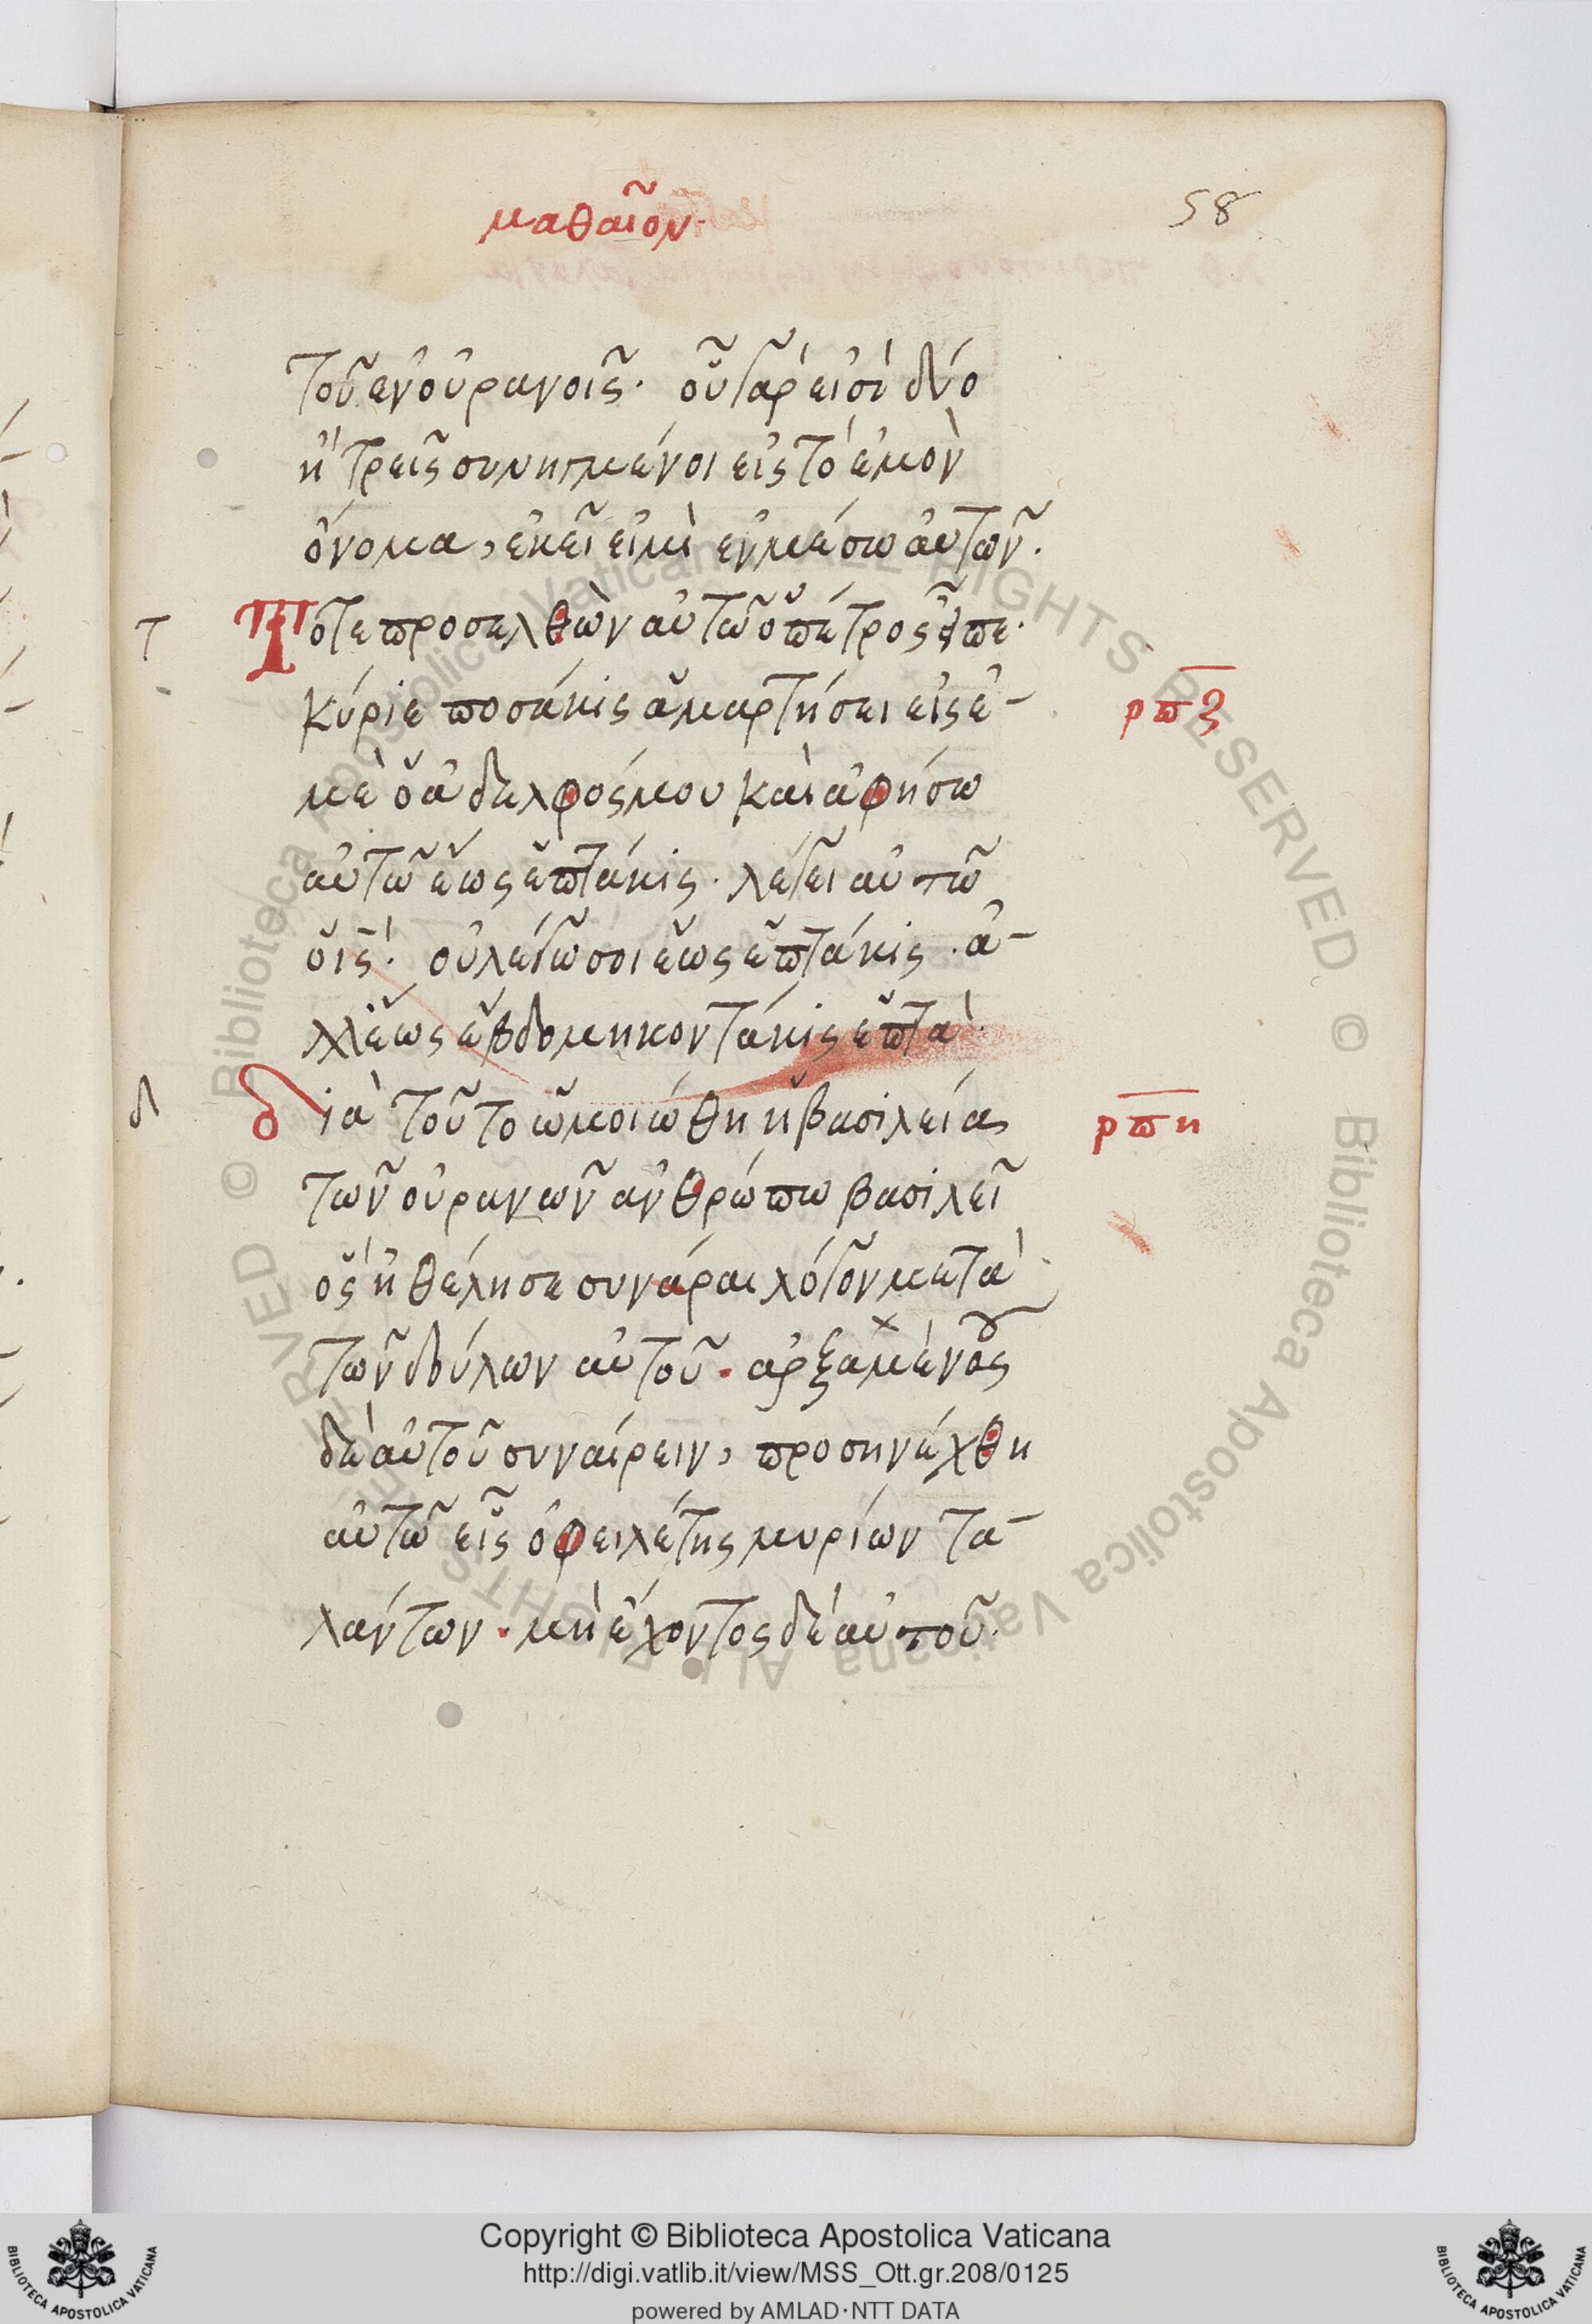 μαθαῖον·
58
τοῦ ἐν οὐρανοῖς· οὗ γάρ εἰσὶ δύο
ἢ τρεῖς συνηγμένοι εἰς τὸ ἐμὸν
ὄνομα, ἐκεῖ εἰμὶ ἐν μέσω αὐτῶν·
τ
Τότε προσελθὼν αὐτῶ ὁ πέτρος εἶπε·
κύριε ποσάκις ἁμαρτήσει εἰς ἐ-
ρπζ
μὲ ὁ ἀδελφός μου καὶ ἀφήσω
αὐτῶ ἕως ἑπτάκις· λέγει αὐτῶ
ὁ ις· οὐ λέγω σοι ἕως ἑπτάκις· ἀ-
λλ' ἕως ἑβδομηκοντάκις ἑπτά·
δ
διὰ τοῦτο ὡμοιώθη ἡ βασιλεία
ρπη
τῶν οὐρανῶν ἀνθρώπω βασιλεῖ
ὃς ἠθέλησε συνάραι λόγον μετὰ
τῶν δούλων αὐτοῦ· ἀρξαμένος
δὲ αὐτοῦ συναίρειν, προσηνέχθη
αὐτῶ εἷς ὀφειλέτης μυρίων τα-
λάντων· μὴ ἔχοντος δὲ αὐτοῦ·
© Biblioteca Apostolica Vaticana ALL RIGHTS RESERVED © Biblioteca Apostolica Vaticana ALL RIGHTS RESERVED
BIBLIOTECA APOSTOLICA VATICANA
Copyright © Biblioteca Apostolica Vaticana
http://digi.vatlib.it/view/MSS_Ott.gr.208/0125
powered by AMLAD·NTT DATA
BIBLIOTECA APOSTOLICA VATICANA